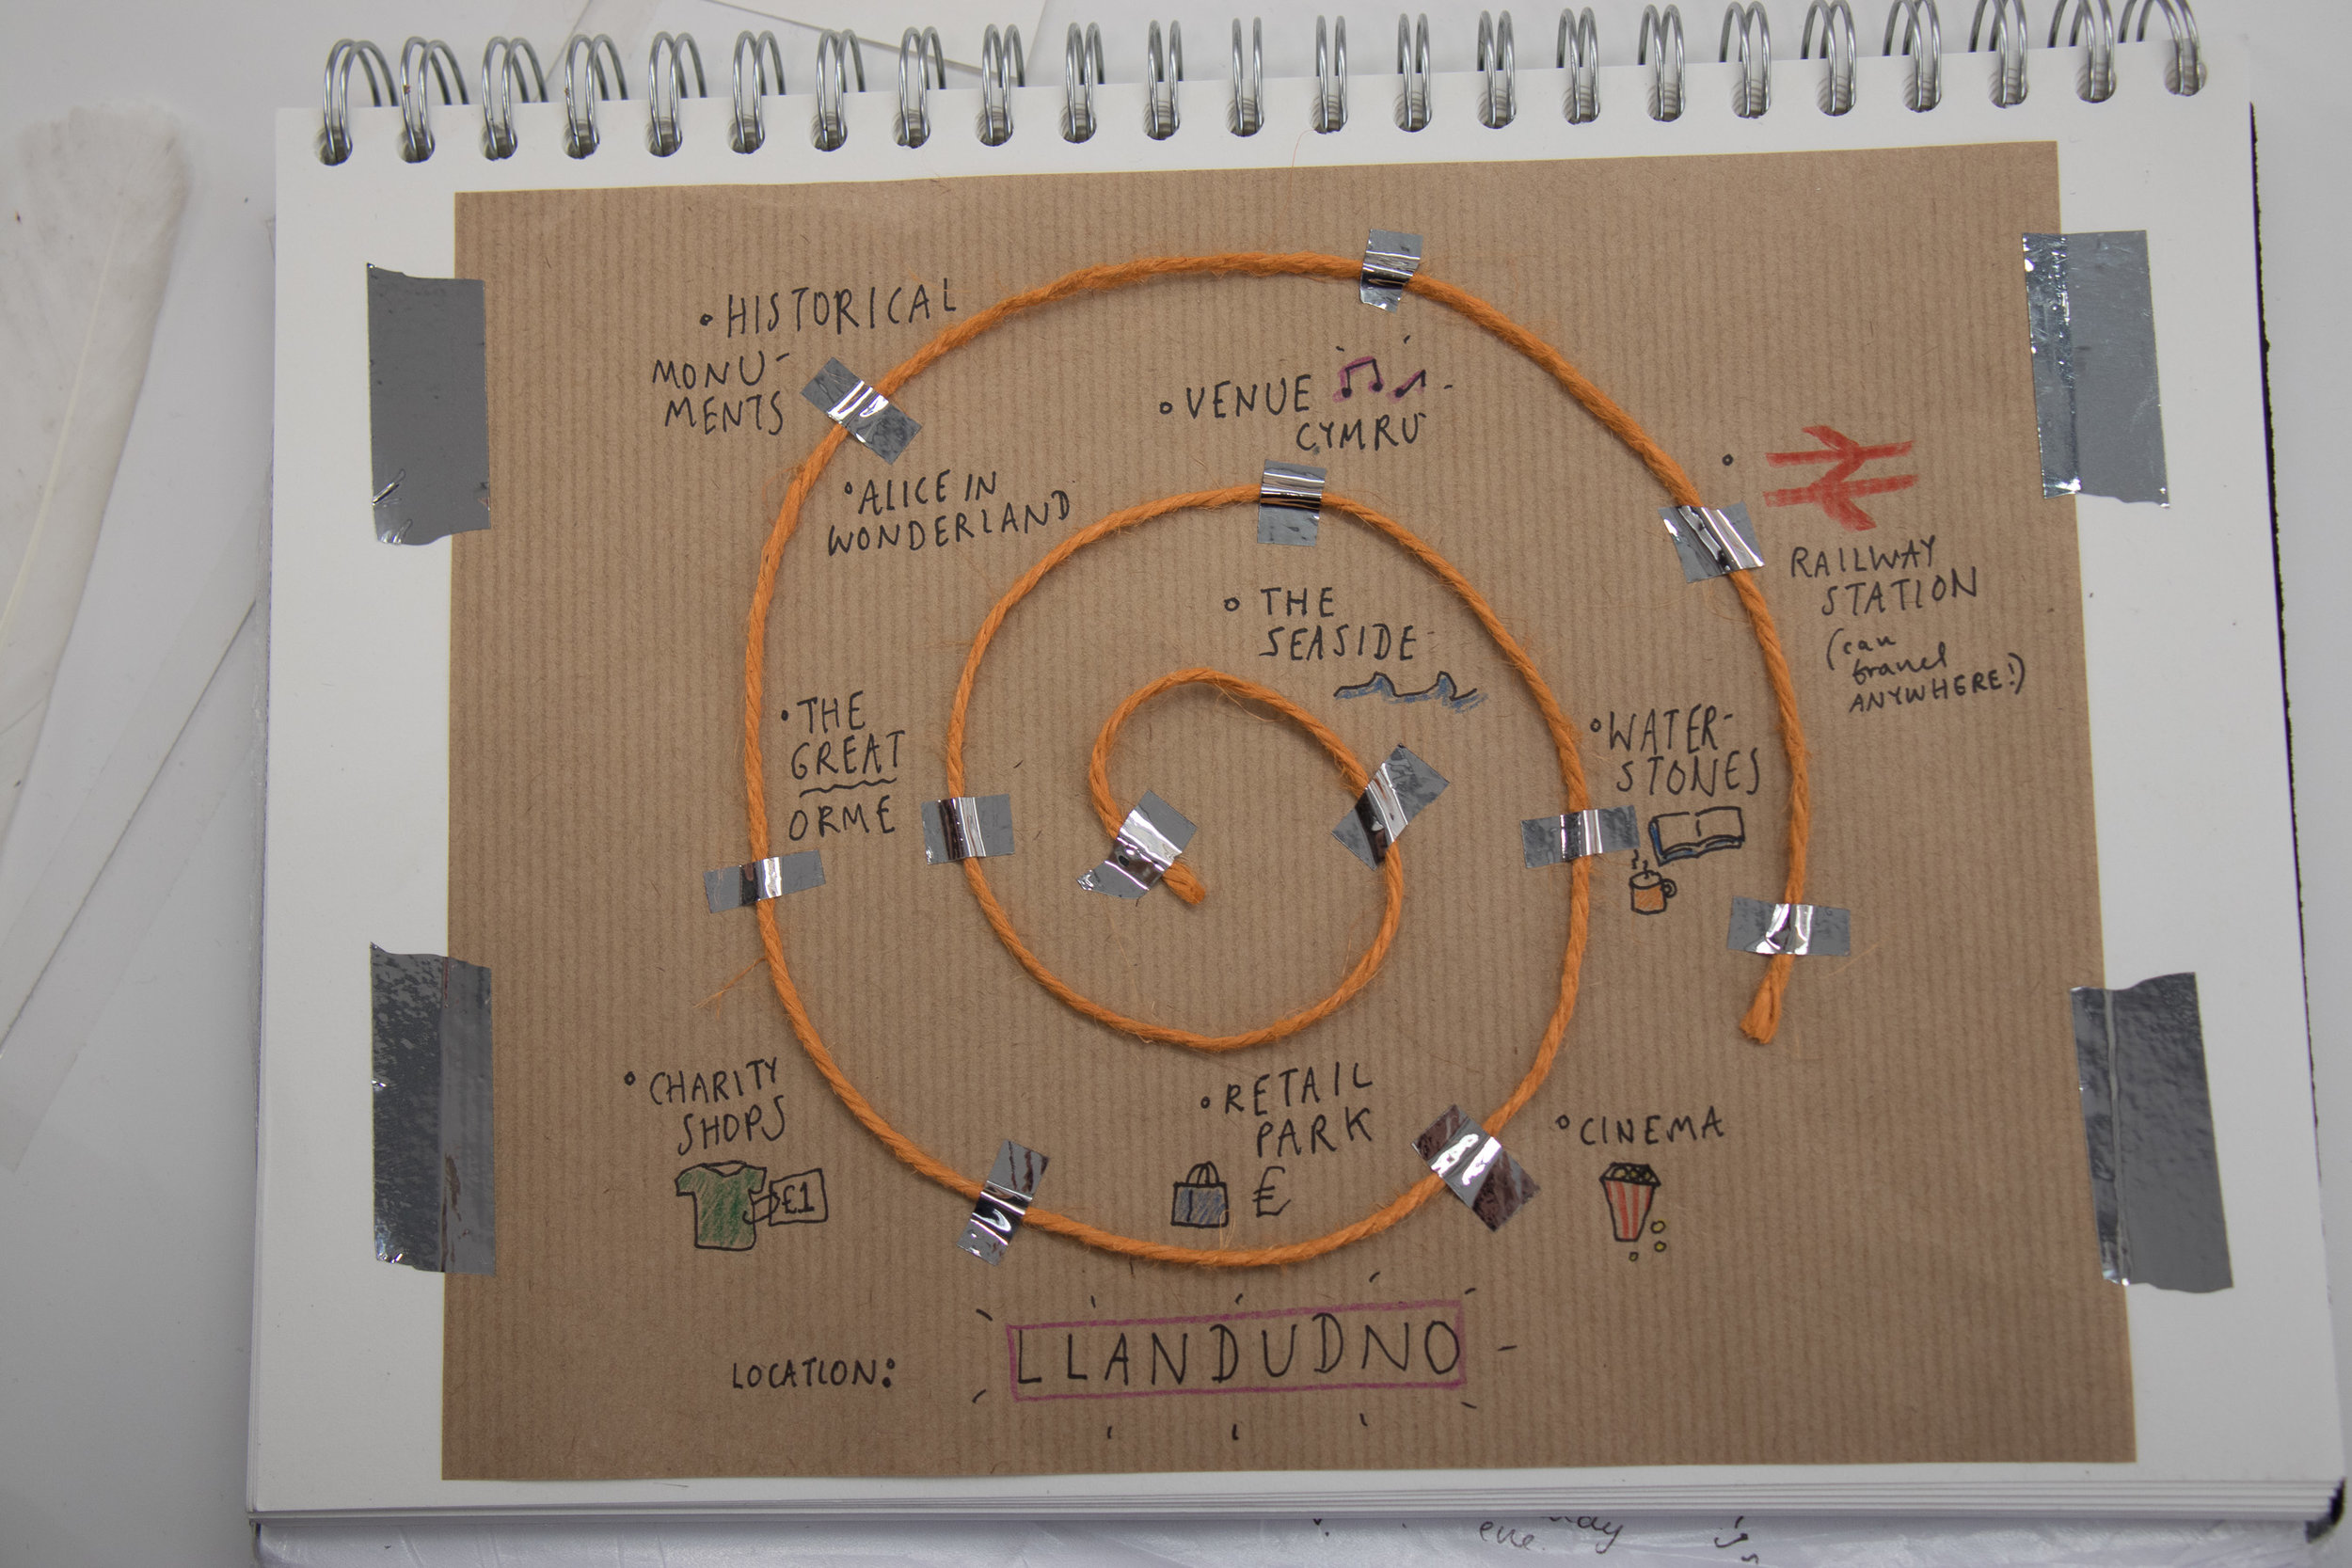 • HISTORICAL
MONU-
MENTS
• VENUE
CYMRU
• ALICE IN
WONDERLAND
• THE
SEASIDE
RAILWAY
STATION
(can
travel
ANYWHERE!)
• THE
GREAT
ORME
• WATER-
STONES
• CHARITY
SHOPS
£1
• RETAIL
PARK
£
• CINEMA
LOCATION:
LLANDUDNO
eve.